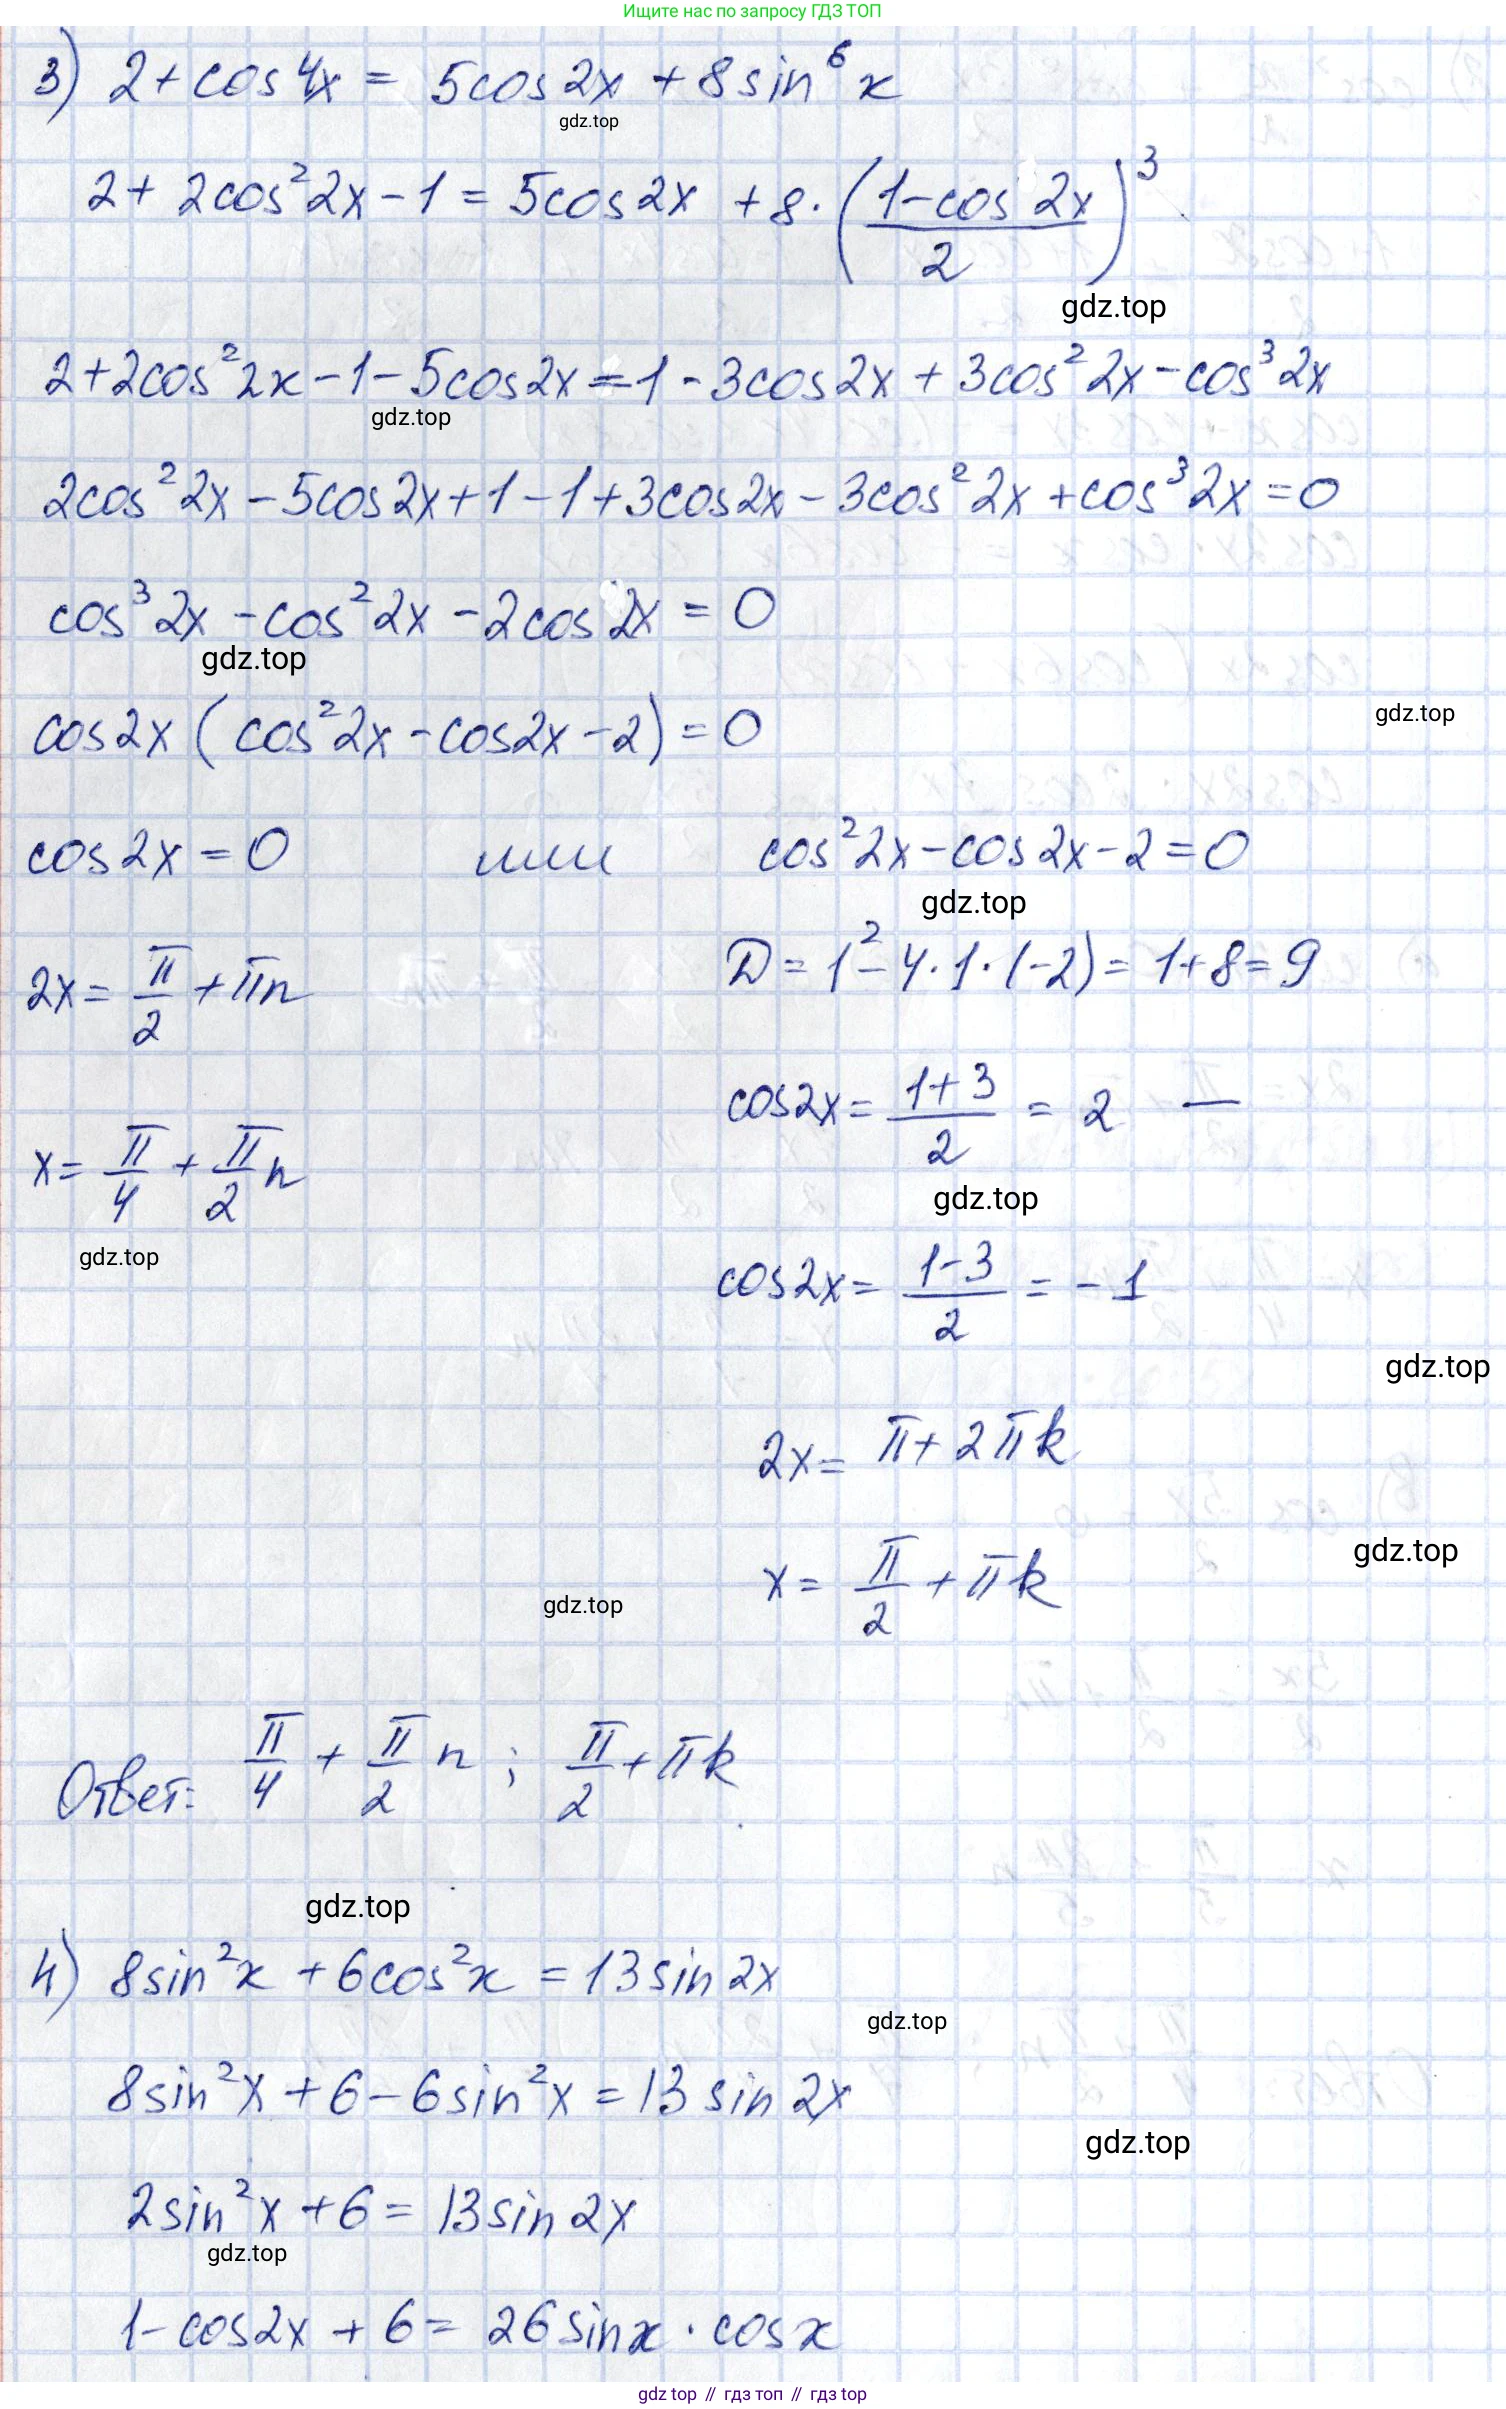 Ищите нас по запросу ГДЗ ТОП
3) 2 + cos 4x = 5cos 2x + 8 sin⁶ x
gdz.top
2 + 2cos² 2x - 1 = 5cos 2x + 8 · ((1 - cos 2x)/2)³
gdz.top
2 + 2cos² 2x - 1 - 5cos 2x = 1 - 3cos 2x + 3cos² 2x - cos³ 2x
gdz.top
2cos² 2x - 5cos 2x + 1 - 1 + 3cos 2x - 3cos² 2x + cos³ 2x = 0
cos³ 2x - cos² 2x - 2cos 2x = 0
gdz.top
gdz.top
cos 2x (cos² 2x - cos 2x - 2) = 0
cos 2x = 0 или cos² 2x - cos 2x - 2 = 0
gdz.top
2x = π/2 + πn D = 1² - 4 · 1 · (-2) = 1 + 8 = 9
cos 2x = (1 + 3)/2 = 2 —
x = π/4 + π/2 n
gdz.top
gdz.top
cos 2x = (1 - 3)/2 = -1
gdz.top
2x = π + 2πk
gdz.top
x = π/2 + πk
gdz.top
Ответ: π/4 + π/2 n ; π/2 + πk
gdz.top
4) 8 sin² x + 6cos² x = 13 sin 2x
gdz.top
8 sin² x + 6 - 6 sin² x = 13 sin 2x
gdz.top
2 sin² x + 6 = 13 sin 2x
gdz.top
1 - cos 2x + 6 = 26 sin x · cos x
gdz top // гдз топ // гдз top